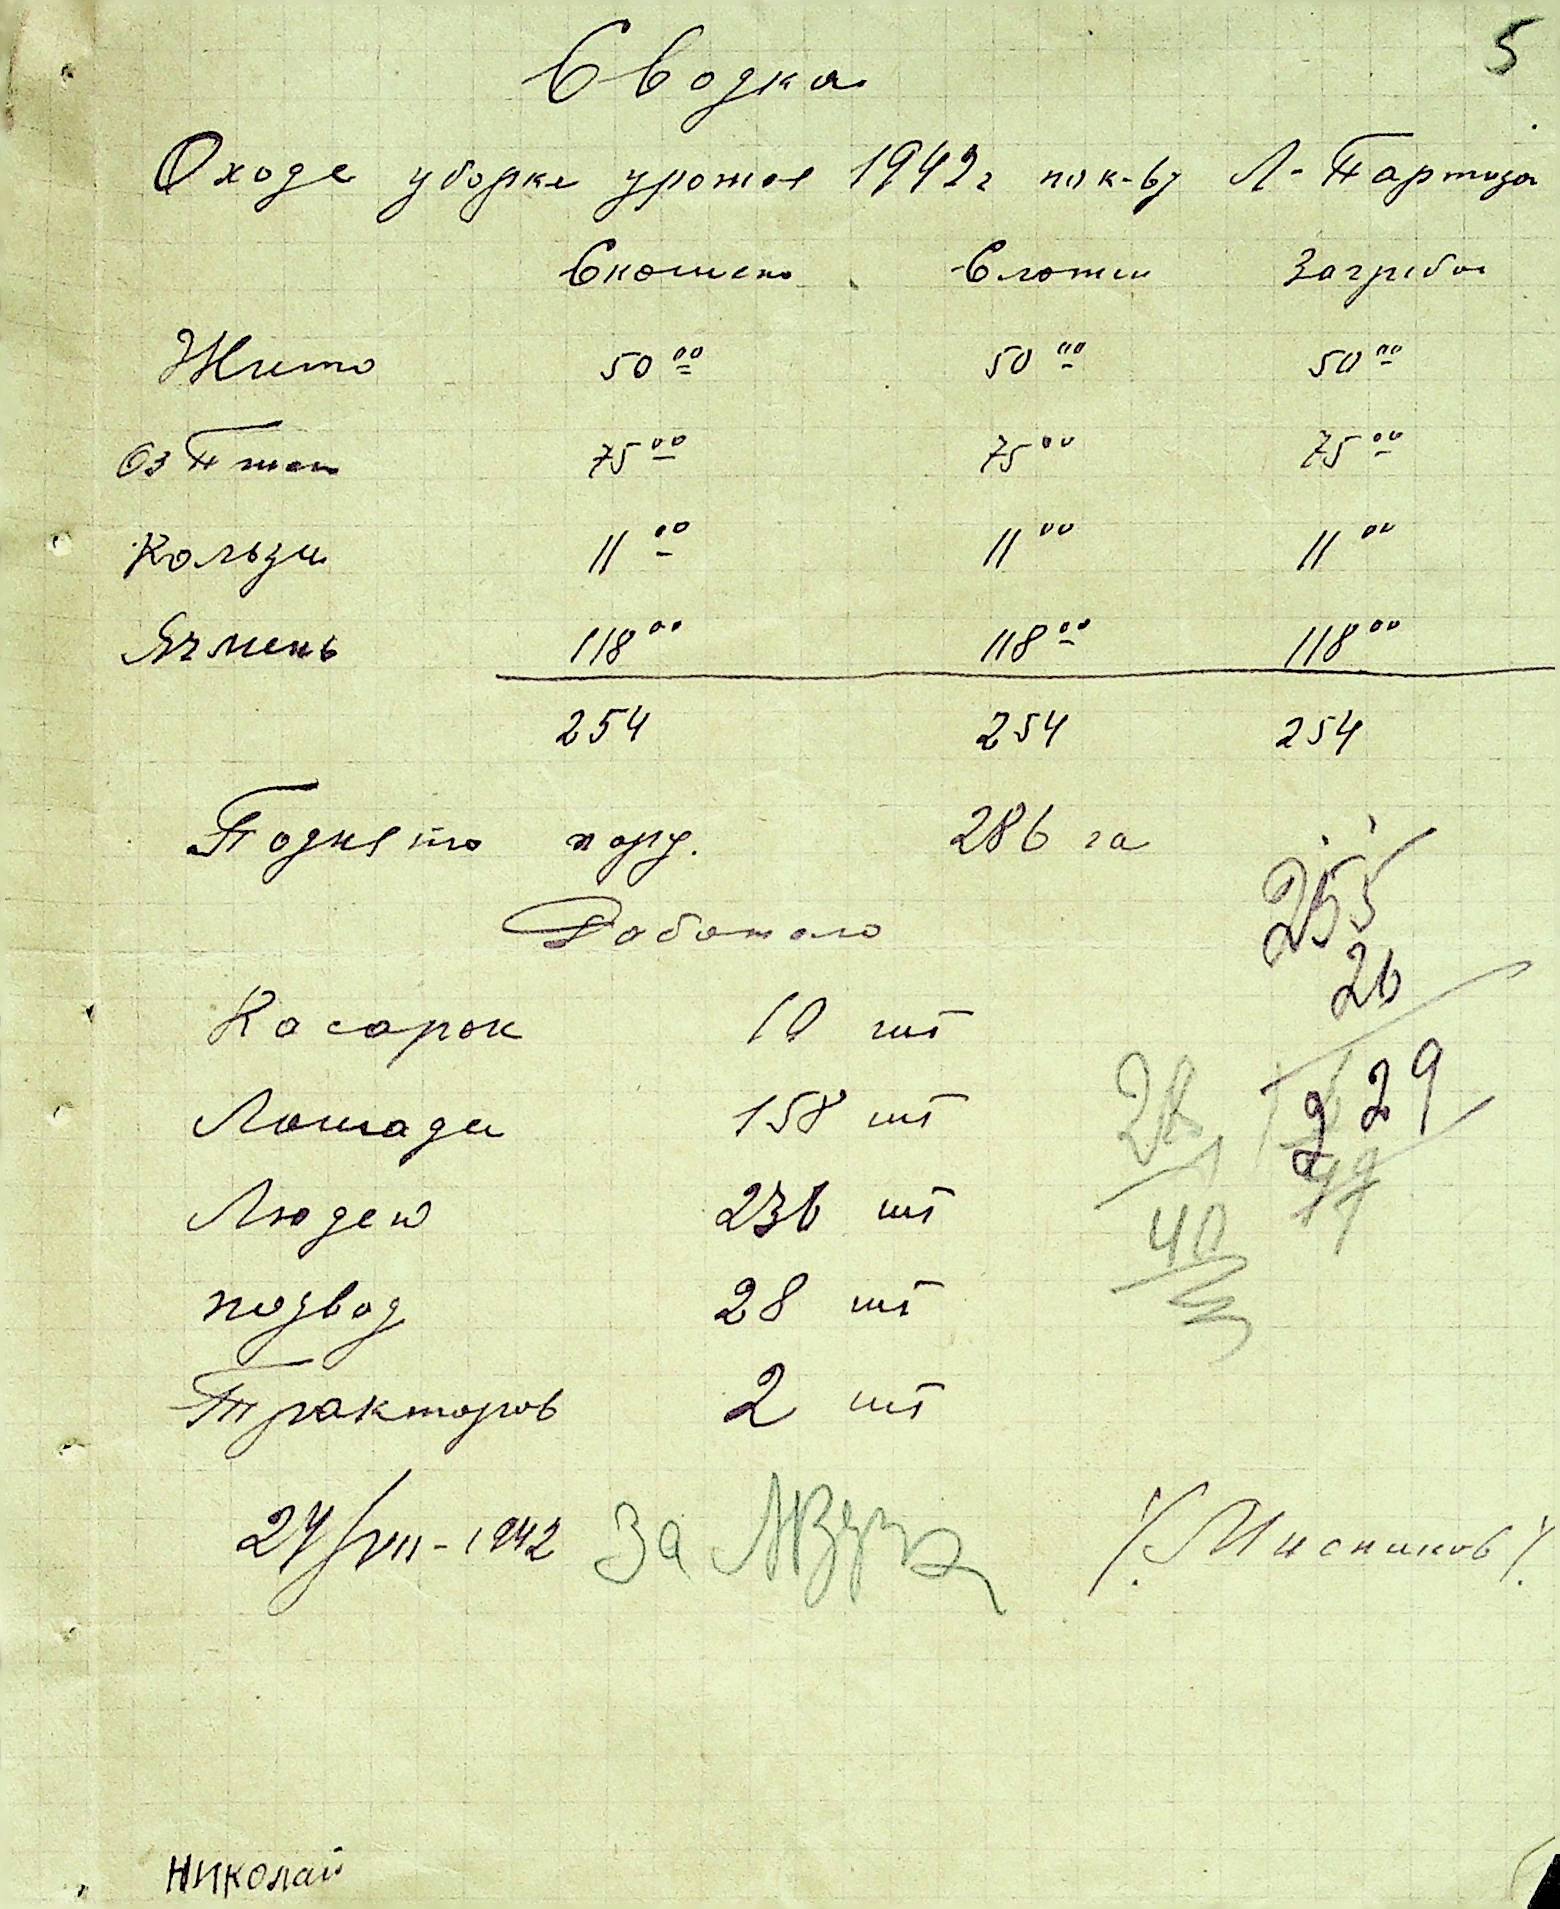 5
Сводка
О ходе уборке урожая 1942 г по к-ву Л-Партизан
Скошено Сложен Загребо
Жито 50 00 50 00 50 00
Оз Пшен 75 00 75 00 75 00
Кользи 11 00 11 00 11 00
Ячмень 118 00 118 00 118 00
254 254 254
Поднято пару. 286 га
255
Работало
26
Косарок 10 шт
229
28
Лошади 158 шт
Людей 236 шт
40
подвод 28 шт
Тракторов 2 шт
24/VII-1942 За /Мисников/
Николай